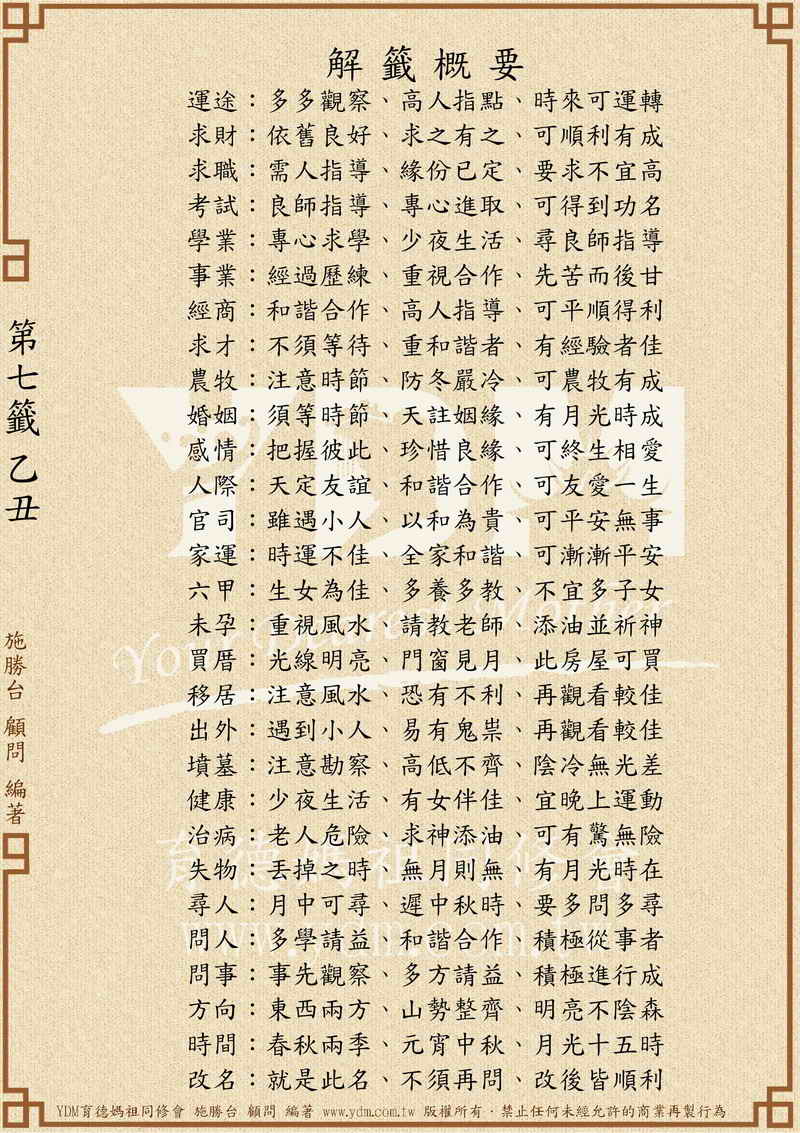 解籤概要
運途：多多觀察、高人指點、時來可運轉
求財：依舊良好、求之有之、可順利有成
求職：需人指導、緣份已定、要求不宜高
考試：良師指導、專心進取、可得到功名
學業：專心求學、少夜生活、尋良師指導
事業：經過歷練、重視合作、先苦而後甘
經商：和諧合作、高人指導、可平順得利
求才：不須等待、重和諧者、有經驗者佳
農牧：注意時節、防冬嚴冷、可農牧有成
婚姻：須等時節、天註姻緣、有月光時成
感情：把握彼此、珍惜良緣、可終生相愛
人際：天定友誼、和諧合作、可友愛一生
官司：雖遇小人、以和為貴、可平安無事
家運：時運不佳、全家和諧、可漸漸平安
六甲：生女為佳、多養多教、不宜多子女
未孕：重視風水、請教老師、添油並祈神
買厝：光線明亮、門窗見月、此房屋可買
移居：注意風水、恐有不利、再觀看較佳
出外：遇到小人、易有鬼祟、再觀看較佳
墳墓：注意勘察、高低不齊、陰冷無光差
健康：少夜生活、有女伴佳、宜晚上運動
治病：老人危險、求神添油、可有驚無險
失物：丟掉之時、無月則無、有月光時在
尋人：月中可尋、遲中秋時、要多問多尋
問人：多學請益、和諧合作、積極從事者
問事：事先觀察、多方請益、積極進行成
方向：東西兩方、山勢整齊、明亮不陰森
時間：春秋兩季、元宵中秋、月光十五時
改名：就是此名、不須再問、改後皆順利
第七籤 乙丑
施勝台 顧問 編著
YDM
Your Dearest Mother
育德媽祖同修會
www.ydm.com.tw
YDM育德媽祖同修會 施勝台 顧問 編著 www.ydm.com.tw 版權所有‧禁止任何未經允許的商業再製行為